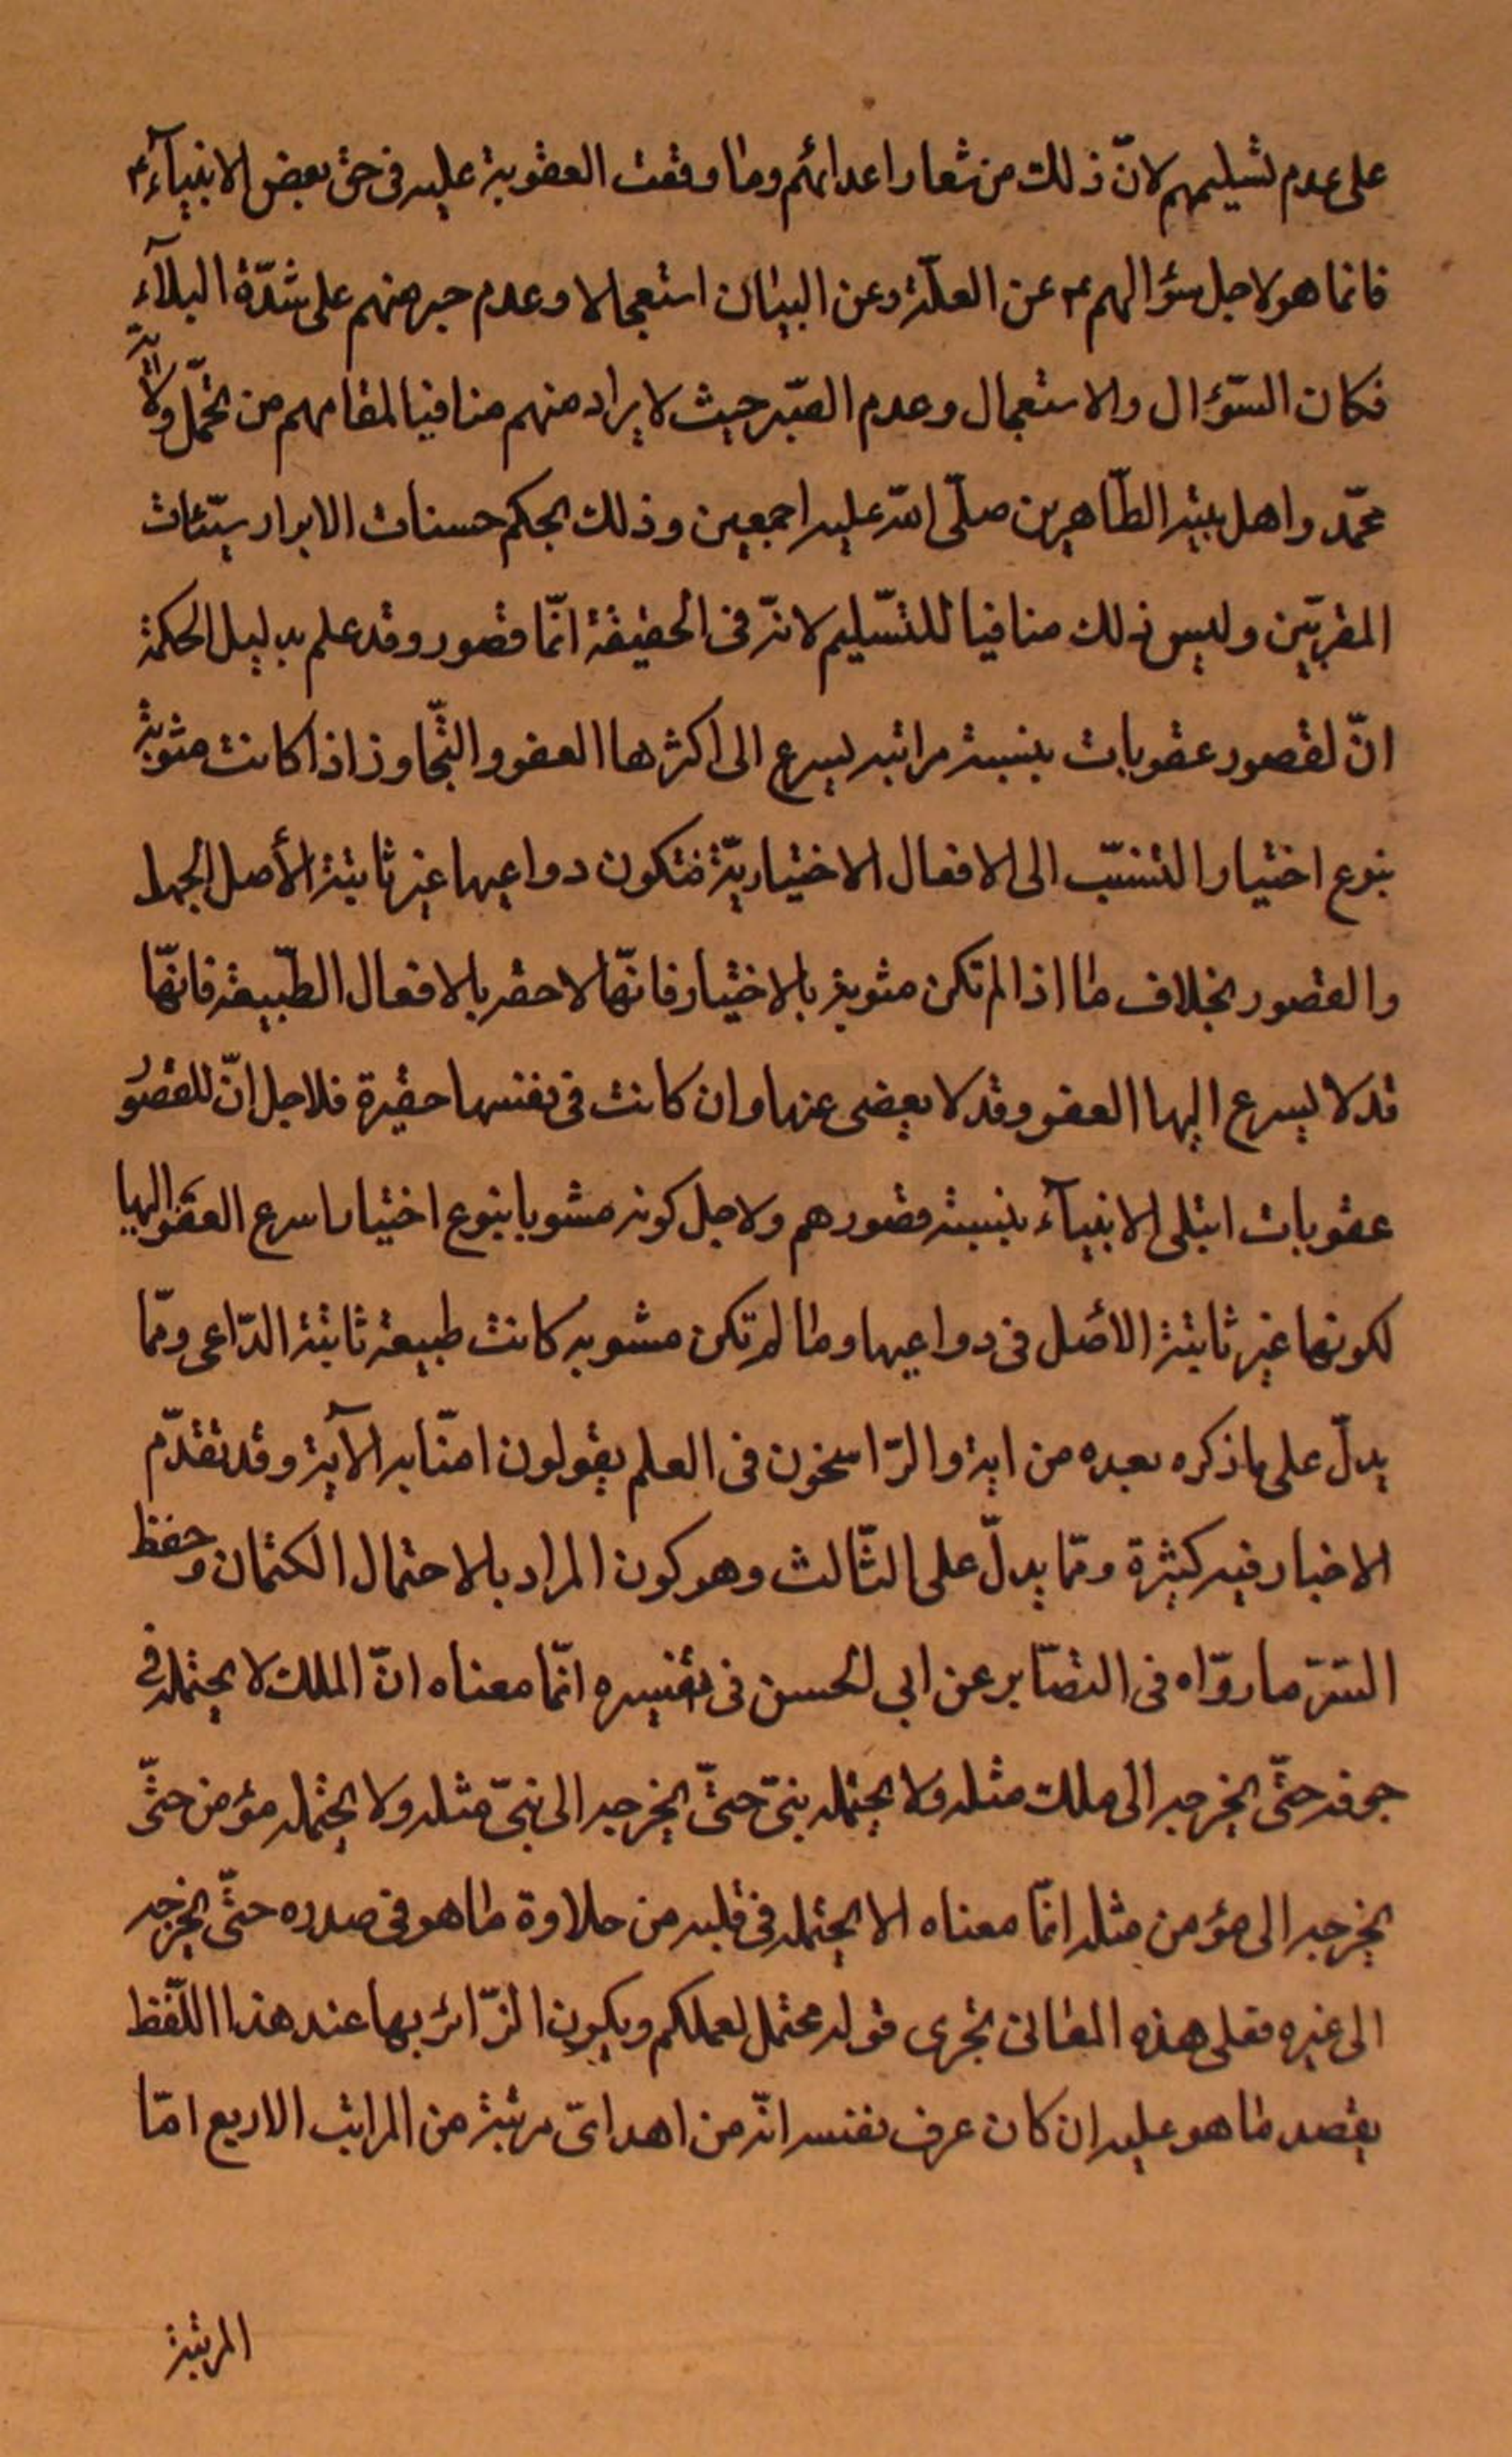 على عدم تسليمهم لانّ ذلك من شعار اعدائهم وما وقعت العقوبة عليه فى حق بعض الانبيآء ع
فانما هو لاجل سؤالهم ع عن العلّة وعن البيان استعجالا وعدم صبر منهم على شدّة البلآء
فكان السّؤال والاستعجال وعدم الصّبر حيث لا يراد منهم منافيا لمقامهم من تحمّل ولاية
محمّد واهل بيته الطّاهرين صلّى الله عليه اجمعين وذلك بحكم حسنات الابرار سيّئات
المقربّين وليس ذلك منافيا للتسّليم لانّه فى الحقيقة انّما قصور وقد علم بدليل الحكمة
انّ لقصور عقوبات بنسبة مراتبه يسرع الى اكثرها العفو والتّجاوز اذا كانت مشوبة
بنوع اختيار التسبّب الى الافعال الاختياريّة فتكون دواعيها غير ثابتة الأصل الجهل
والقصور بخلاف ما اذا لم تكن مشوبة بالاختيار فانّها لاحقه بالافعال الطّبيعة فانّها
قد لا يسرع اليها العفو وقد لا يعضى عنها وان كانت فى نفسها حقيرة فلاجل انّ للقصور
عقوبات ابتلى الانبيآء بنسبة قصورهم ولاجل كونه مشوبا بنوع اختيار اسرع العفو اليها
لكونها غير ثابتة الأصل فى دواعيها وما لم تكن مشوبه كانت طبيعة ثابتة الدّاعى وممّا
يدلّ على ما ذكره بعده من اية والرّاسخون فى العلم يقولون امنّا به الآية وقد تقدّم
الاخبار فيه كثيرة وممّا يدلّ على الثّالث وهو كون المراد بالاحتمال الكتمان وحفظ
السّرّ ما روّاه فى البصّاير عن ابى الحسن فى تفسيره انّما معناه انّ الملك لا يحتمله فى
جوفه حتّى يخرجه الى ملك مثله ولا يحتمله نبىّ حتّى يخرجه الى نبىّ مثله ولا يحتمله مؤمن حتّى
يخرجه الى مؤمن مثله انمّا معناه الا يحتمله فى قلبه من حلاوة ما هو فى صدره حتّى يخرجه
الى غيره فعلى هذه المعانى تجرى قوله محتمل لعملكم ويكون الزّائر بها عند هذا اللّفظ
يقصد ما هو عليه ان كان عرف نفسه انّه من اهل اىّ مرتبة من المراتب الاربع امّا
المرتبة